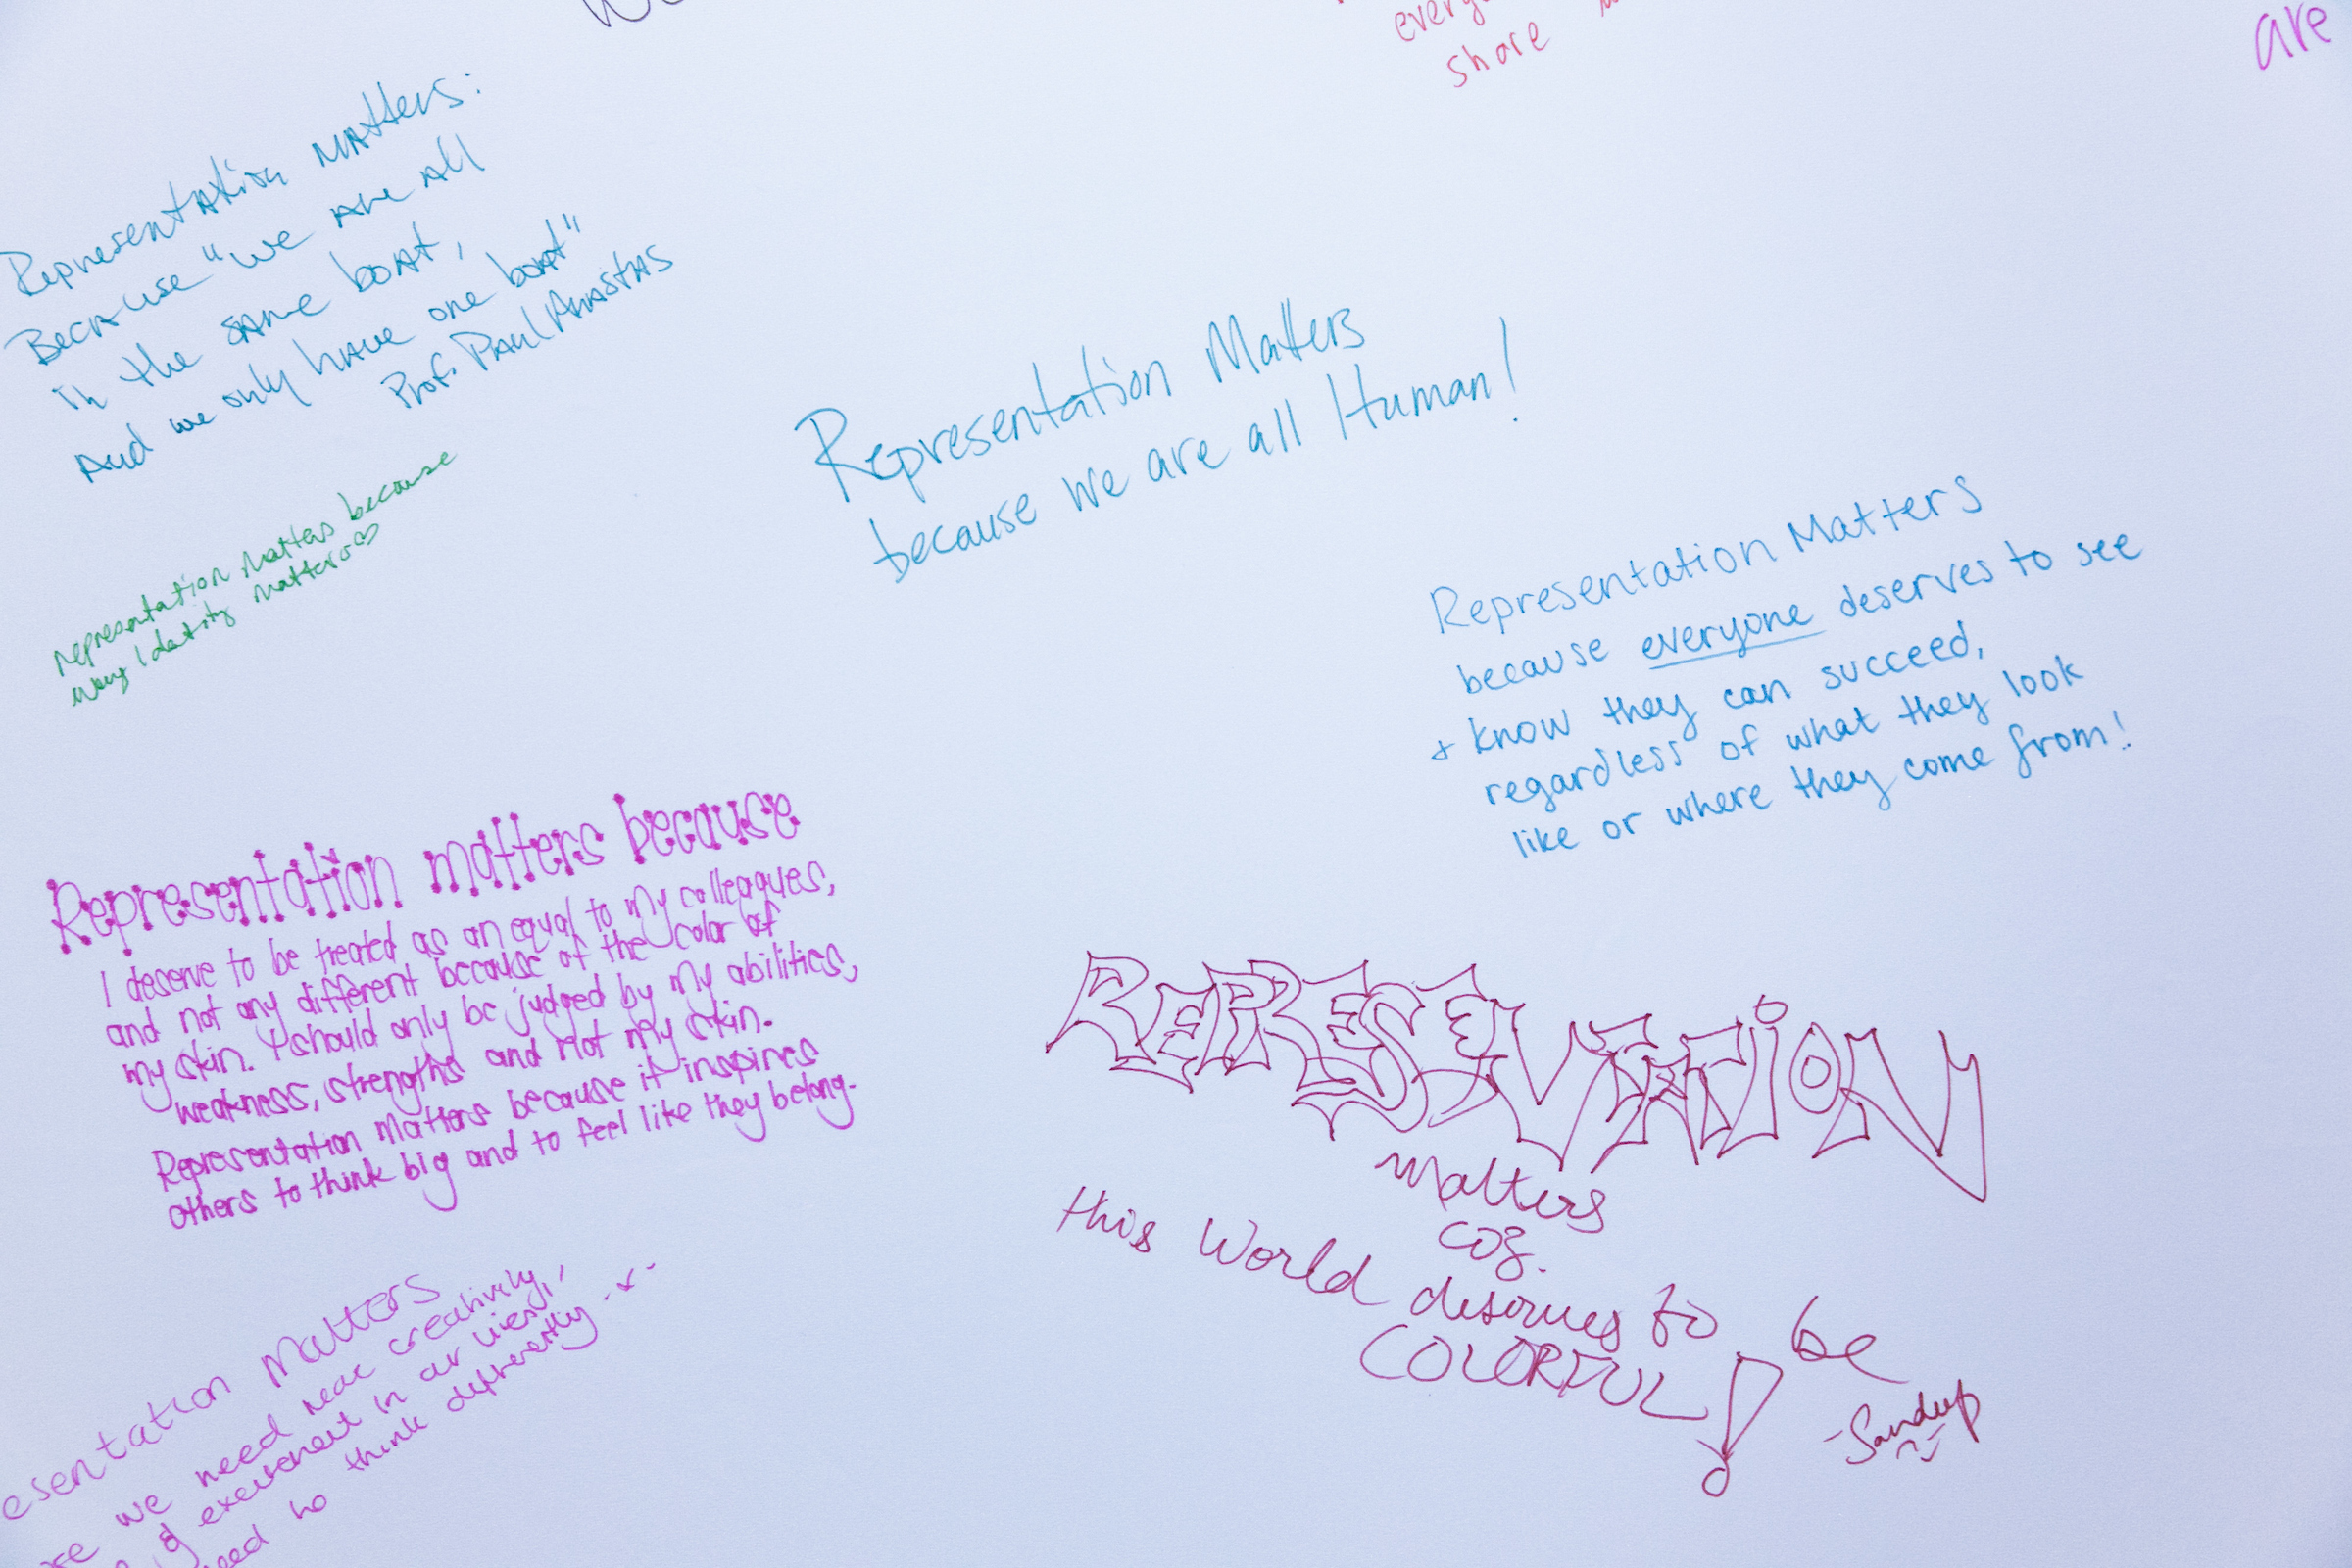 everyo
share
are
Representation Matters:
Because "we are all
in the same boat,
And we only have one boat"
Prof. Paul Anastas
representation matters because
my identity matters♡
Representation Matters
because we are all Human!
Representation Matters
because everyone deserves to see
+ know they can succeed,
regardless of what they look
like or where they come from!
Representation matters because
I deserve to be treated as an equal to my colleagues,
and not any different because of the color of
my skin. I should only be judged by my abilities,
weakness, strengths and not my skin.
Representation matters because it inspires
others to think big and to feel like they belong.
REPRESENTATION
matters
coz.
this World deserves to be
COLORFUL!
-Sandeep
esentation matters
we need more creativity,
excitement in our lives,
need to think differently